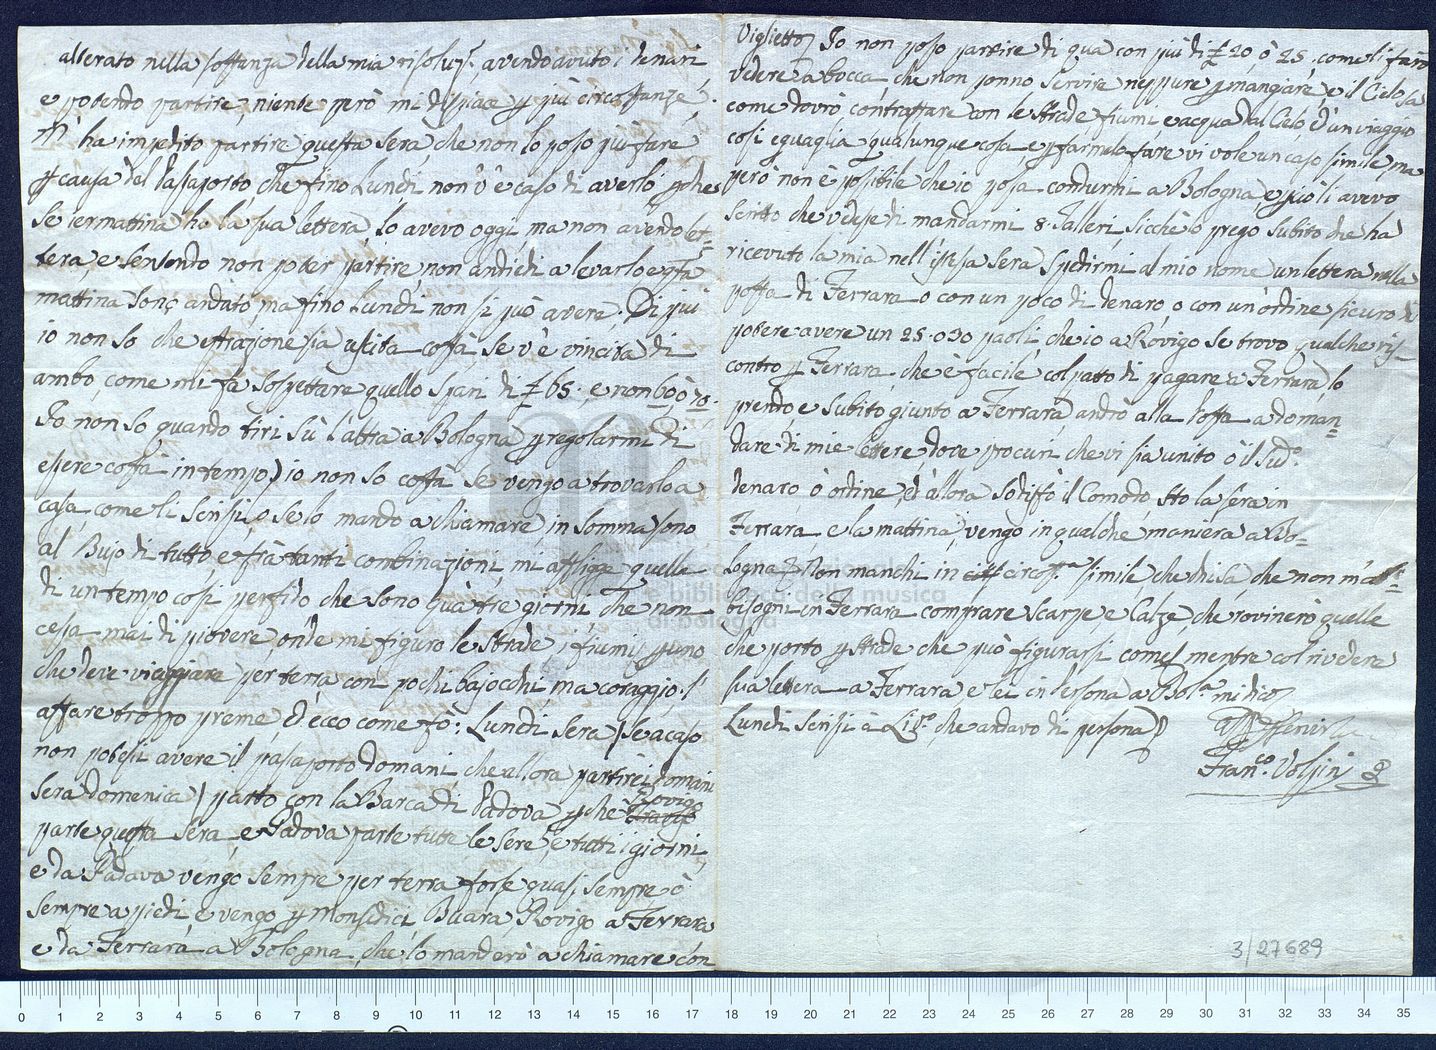 alterato nella sostanza della mia risoluz.e, avendo avuto i denari
e potendo partire, niente però mi dispiace p più circostanze.
M'ha impedito partire questa sera, che non lo posso più fare
p causa del Passaporto, che fino Lundi non v'è caso di averlo, perche
se iermattina ho la sua lettera, lo avevo oggi, ma non avendo let=
tera, e sentendo non poter partire non andiedi a levarlo e q.ta
mattina sono andato, ma fino Lundi non si può avere. Di più
io non so che estrazione sia uscita costà, se v'è vincita di
ambo, come mi fa sospettare quello Span di £ 65. e non 60 ò 70.
Io non so quando tiri sù l'altra a Bologna p regolarmi di
essere costà in tempo) io non so costà se vengo a trovarlo a
casa, come li scrissi, o se lo mando a chiamare, in somma sono
al Bujo di tutto, e frà tanti combinazioni, mi affligge quella
di un tempo così perfido che sono quatro giorni che non
cessa mai di piovere, onde mi figuro le strade, i fiumi p uno
che deve viaggiare per terra con pochi bajocchi, ma coraggio. L'
affare troppo preme, ed ecco come fò: Lundi sera / se a caso
non potessi avere il passaporto domani, che allora partirei domani
sera domenica / parto con la Barca di Padova, p che Rovigo
parte questa sera e Padova parte tutte le sere, e tutti i giorni,
e da Padova vengo sempre per terra forse quasi sempre ò
sempre a piedi, e vengo p Monselici, Buara, Rovigo a Ferrara
e da Ferrara a Bologna, che lo manderò a chiamare con
Viglietto. Io non posso partire di qua con più di £ 20, ò 25. come li farò
vedere a bocca che non ponno servire neppure p mangiare, e il Cielo sa
come dovrò contrastare con le strade fiumi e acqua dal Cielo d'un viaggio
così eguaglia qualunque cosa, e p farmelo fare vi vole un caso simile, ma
però non è possibile che io possa condurmi a Bologna e p ciò li avevo
scritto che vedesse di mandarmi 8. Talleri, sicchè lo prego subito che ha
ricevuto la mia nell'istessa sera spedirmi al mio nome un lettera nella
posta di Ferrara o con un poco di denaro, o con un'ordine sicuro di
potere avere un 25. o 30 paoli, che io a Rovigo se trovo qualche ris=
contro p Ferrara, che è facile col patto di pagare a Ferrara, lo
prendo e subito giunto a Ferrara, andrò alla Posta a doman=
dare di mie lettere, dove procuri che vi sia unito ò il sud.o
denaro ò ordine, ed allora sodisfo il Comodo, sto la sera in
Ferrara, e la mattina vengo in qualche maniera a Bo=
logna, Non manchi in circost.a simile, che chi sa che non m'a
bisogni in Ferrara comprare scarpe e Calze, che rovinerò quelle
che porto p strade che può figurarsi come, mentre col rivedere
sua lettera a Ferrara e lei in Persona a Bol.a mi dico
Lundi scrissi à che andavo di persona)
Fran.co Volpini
3/27689
0 1 2 3 4 5 6 7 8 9 10 11 12 13 14 15 16 17 18 19 20 21 22 23 24 25 26 27 28 29 30 31 32 33 34 35